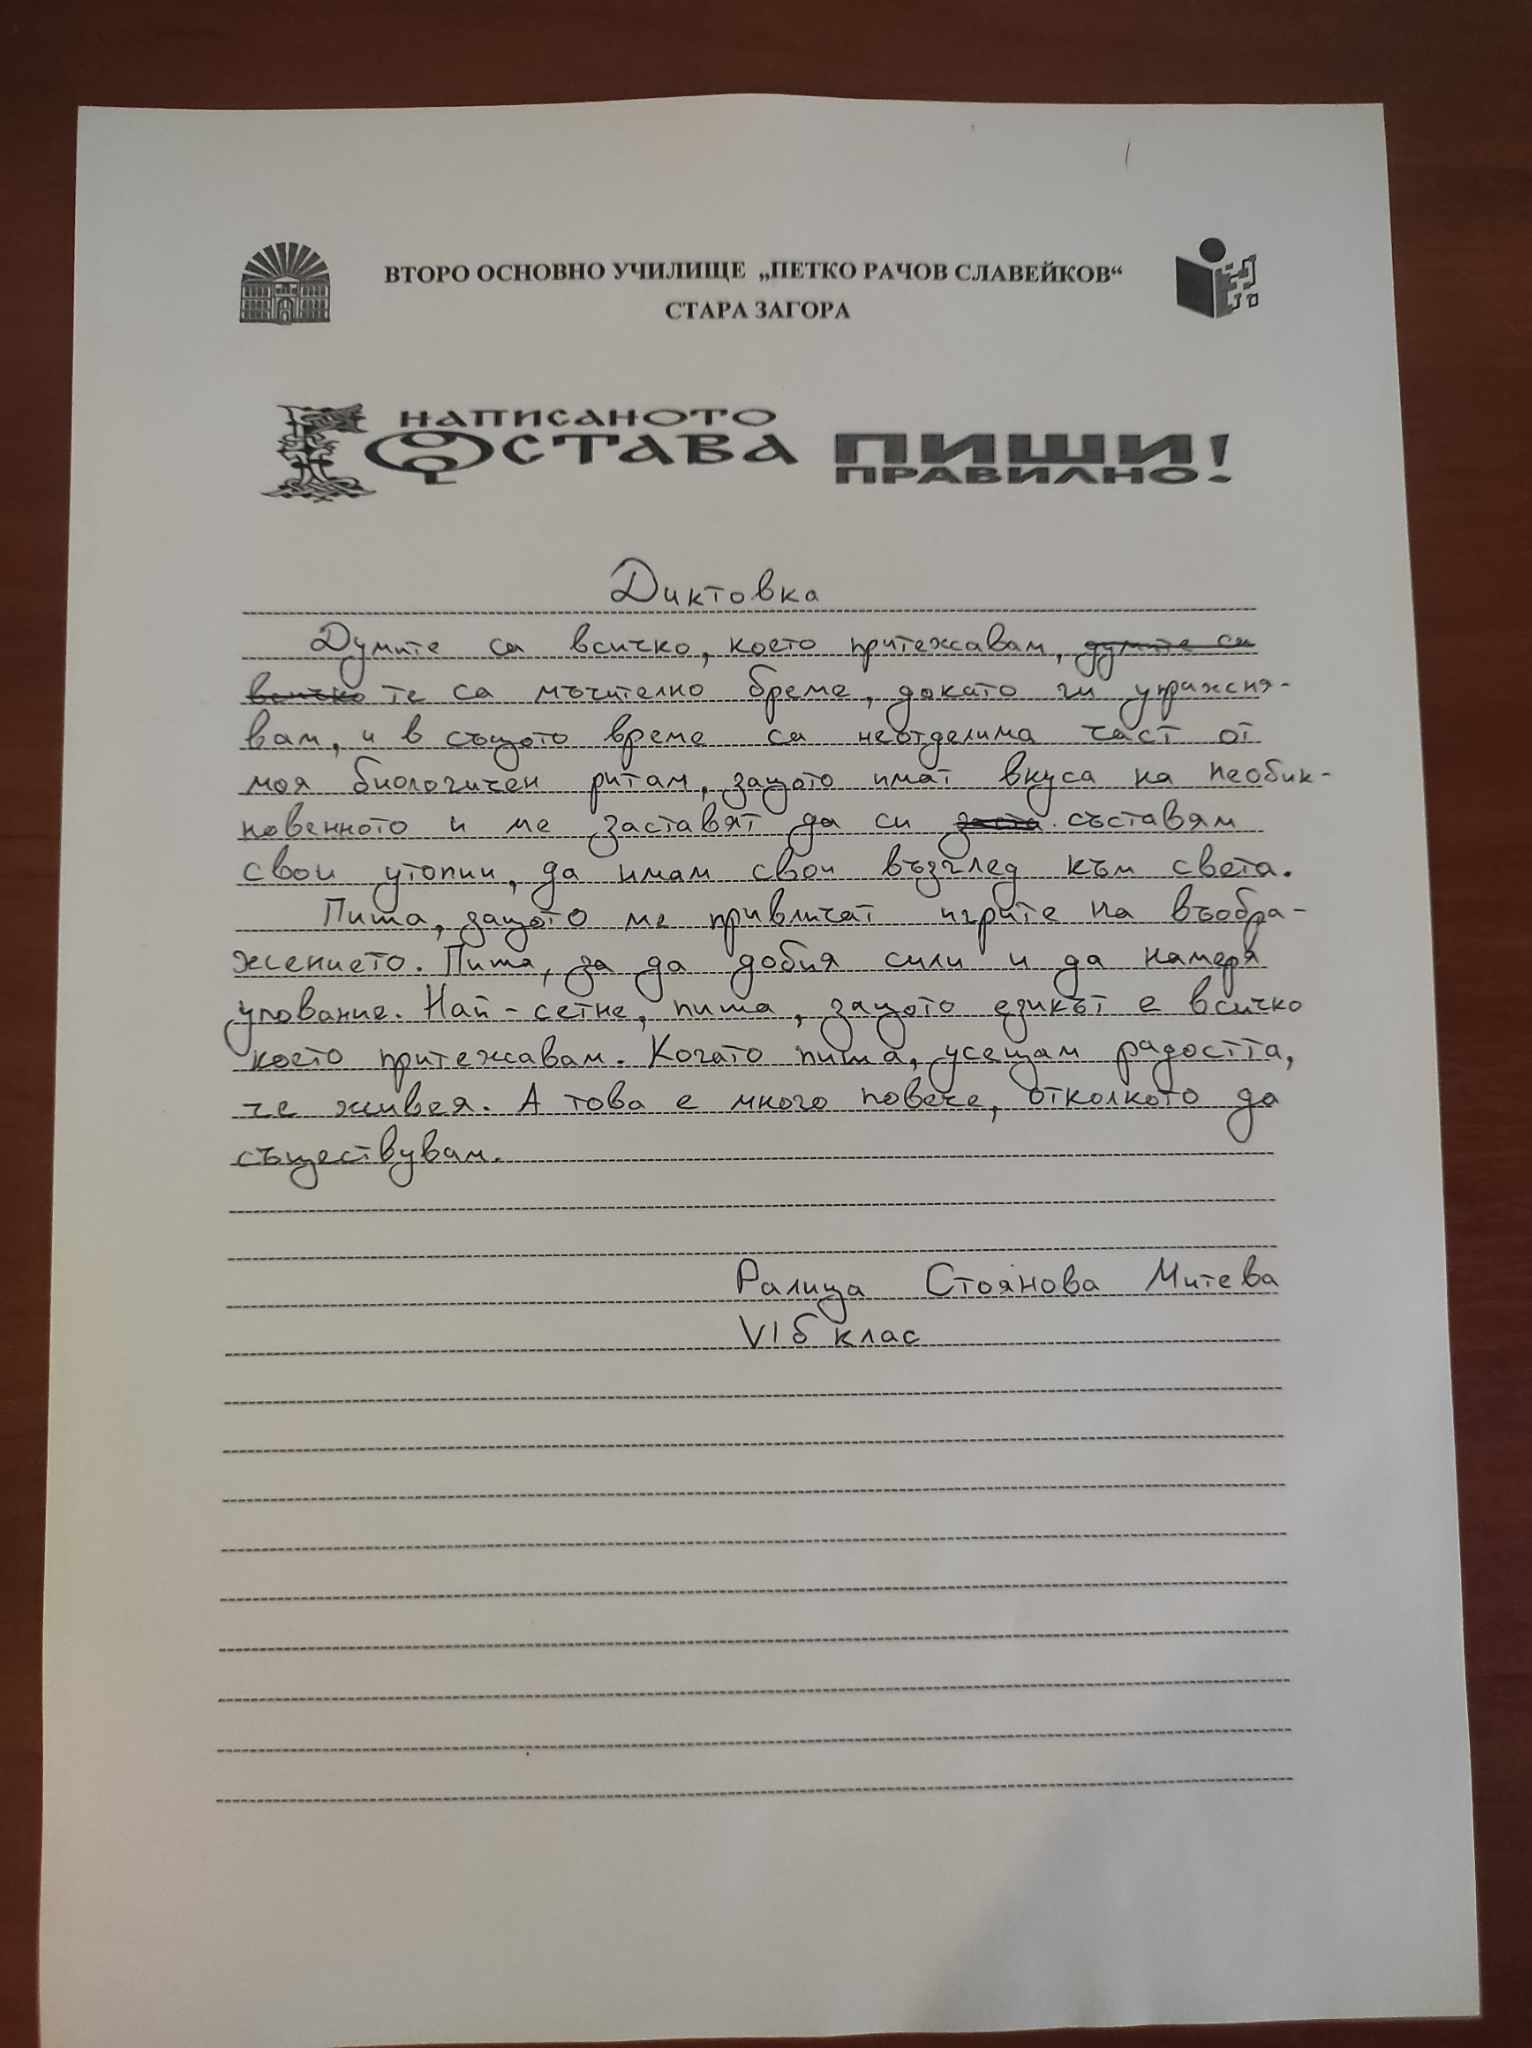 ВТОРО ОСНОВНО УЧИЛИЩЕ „ПЕТКО РАЧОВ СЛАВЕЙКОВ“
СТАРА ЗАГОРА
НАПИСАНОТО
ОСТАВА
ПИШИ
ПРАВИЛНО!
Диктовка
Думите са всичко, което притежавам, думите са
всичко те са мъчително бреме, докато ги упражня-
вам, и в същото време са неотделима част от
моя биологичен ритам, защото имат вкуса на необик-
новенното и ме заставят да си заста съставям
свои утопии, да имам свои възглед към света.
Пиша, защото ме привличат игрите на въобра-
жението. Пиша, за да добия сили и да намеря
упование. Най-сетне, пиша, защото езикът е всичко
което притежавам. Когато пиша, усещам радостта,
че живея. А това е много повече, отколкото да
съществувам.
Ралица Стоянова Митева
VI б клас